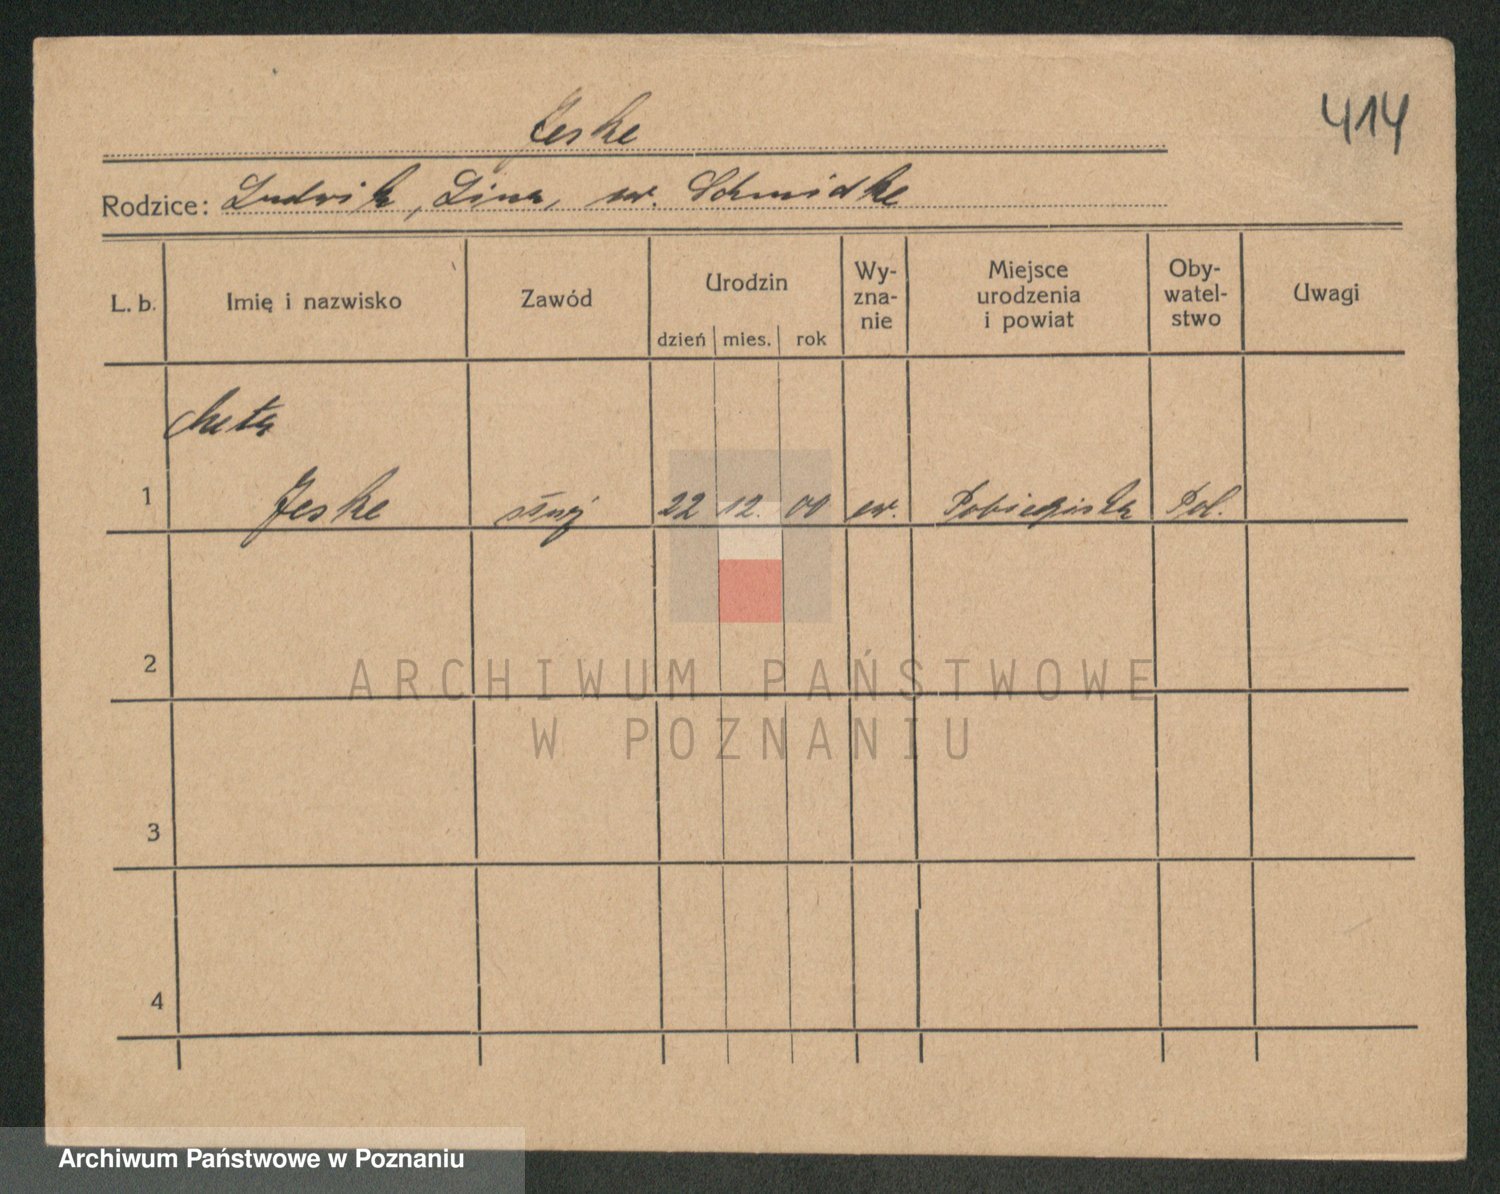 414
Jeske
Rodzice: Ludwik, Lina, ur. Schmidke
L. b.
Imię i nazwisko
Zawód
Urodzin
dzień mies. rok
Wy-
zna-
nie
Miejsce
urodzenia
i powiat
Oby-
watel-
stwo
Uwagi
Meta
1 Jeske służ 22 12. 00 ew. Pobiedziska Pol.
2
3
4
ARCHIWUM PAŃSTWOWE
W POZNANIU
Archiwum Państwowe w Poznaniu